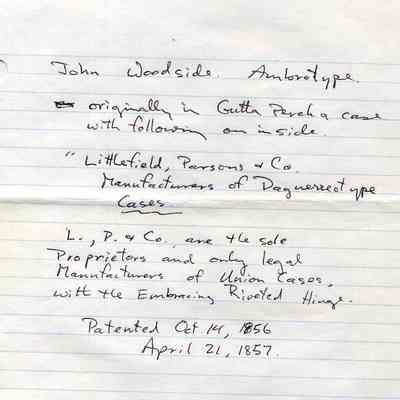 John Woodside. Ambrotype.
originally in Gutta Percha case
with following on inside.
" Littlefield, Parsons & Co.
Manufacturers of Daguerreotype
Cases
L., P. & Co. are the sole
Proprietors and only legal
Manufacturers of Union Cases,
with the Embracing Riveted Hinge.
Patented Oct. 14, 1856
April 21, 1857.